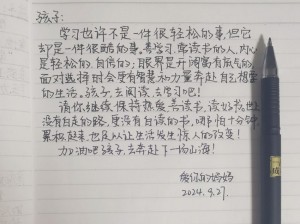 孩子:
学习也许不是一件很轻松的事,但它
却是一件很酷的事,善学习、常读书的人,内心
是轻松的、自信的;眼界是开阔富有氧气的,
面对选择时会更有智慧和力量奔赴自己想要
的生活。孩子,去阅读、去学习吧!
请你继续保持热爱,善读书、读好书,世上
没有白走的路,更没有白读的书,哪怕十分钟
累积起来,也足以让生活发生惊人的改变!
加油吧孩子,去奔赴下一场山海!
爱你的妈妈
2024.9.27.